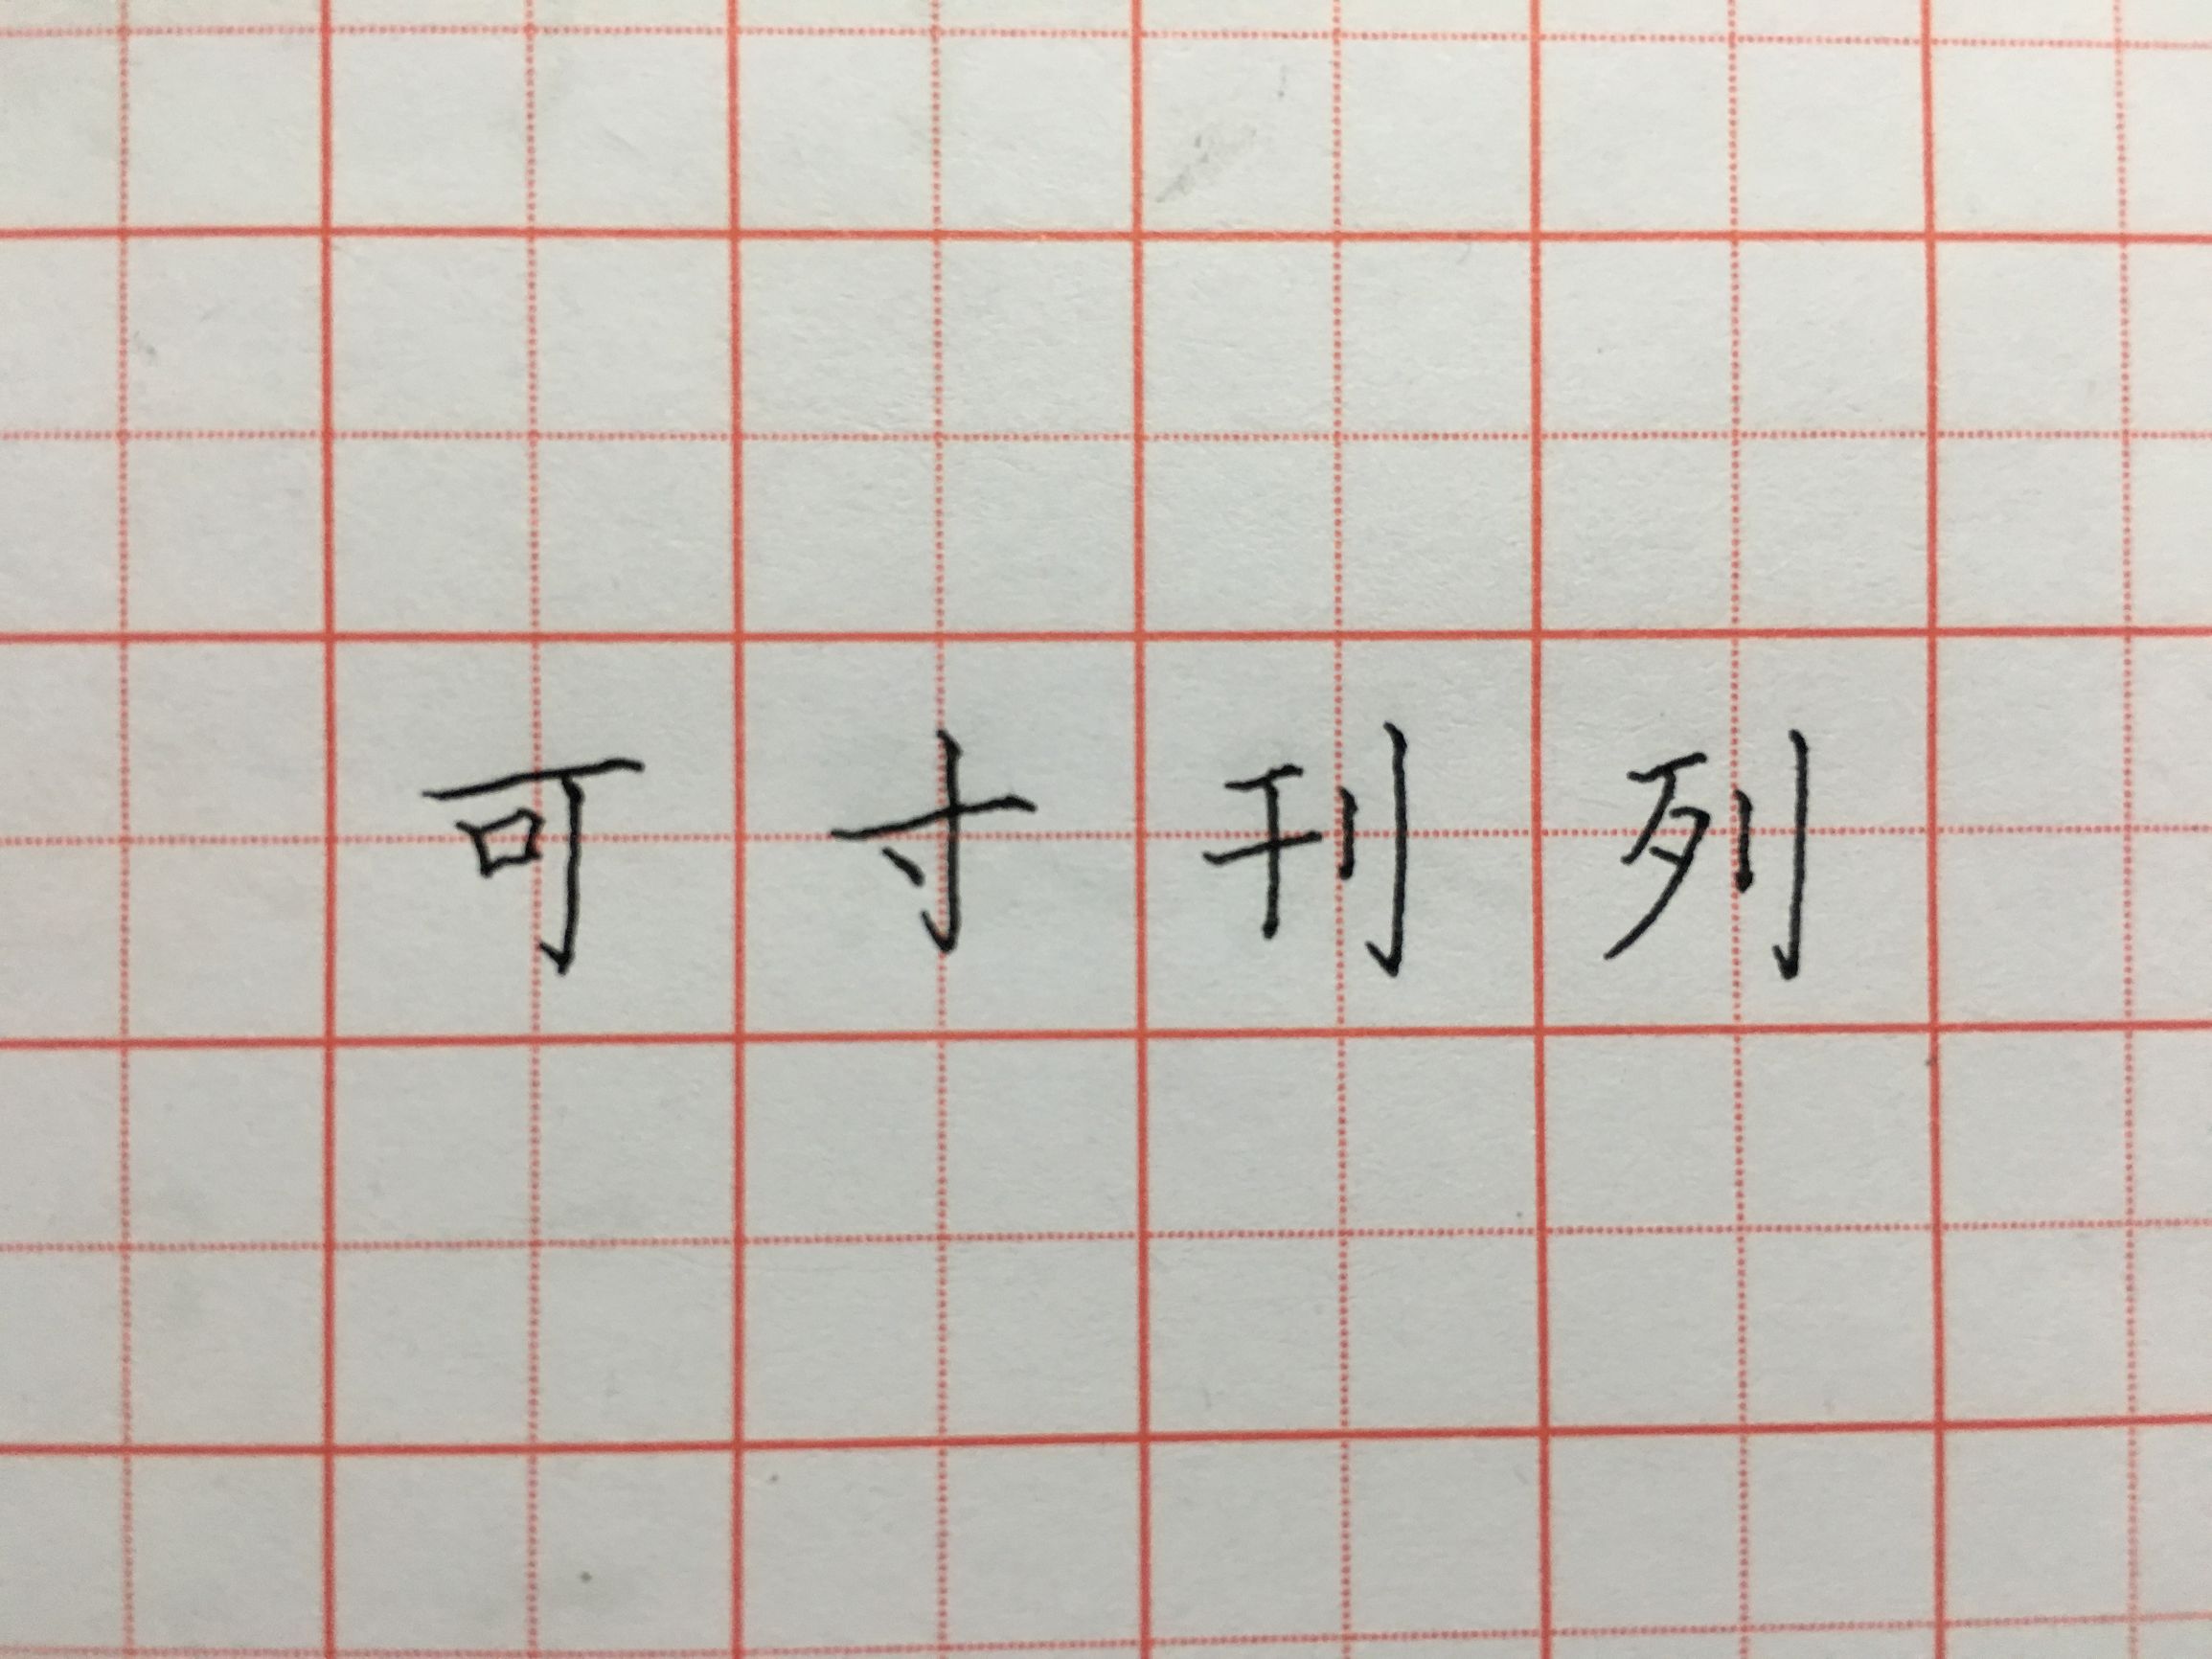 可寸刊列